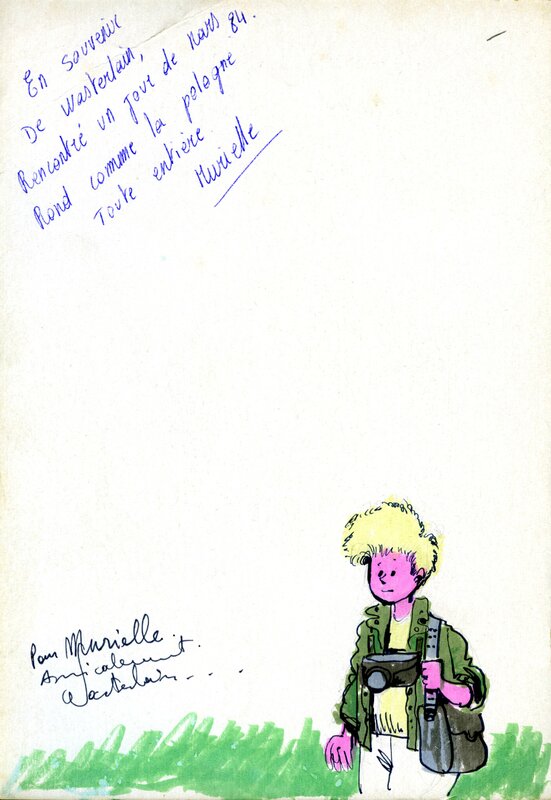 En souvenir
De Wasterlain,
Rencontré un jour de Mars 84.
Rond comme la pologne
Toute entière
Murielle
Pour Murielle.
Amicalement.
Wasterlain...